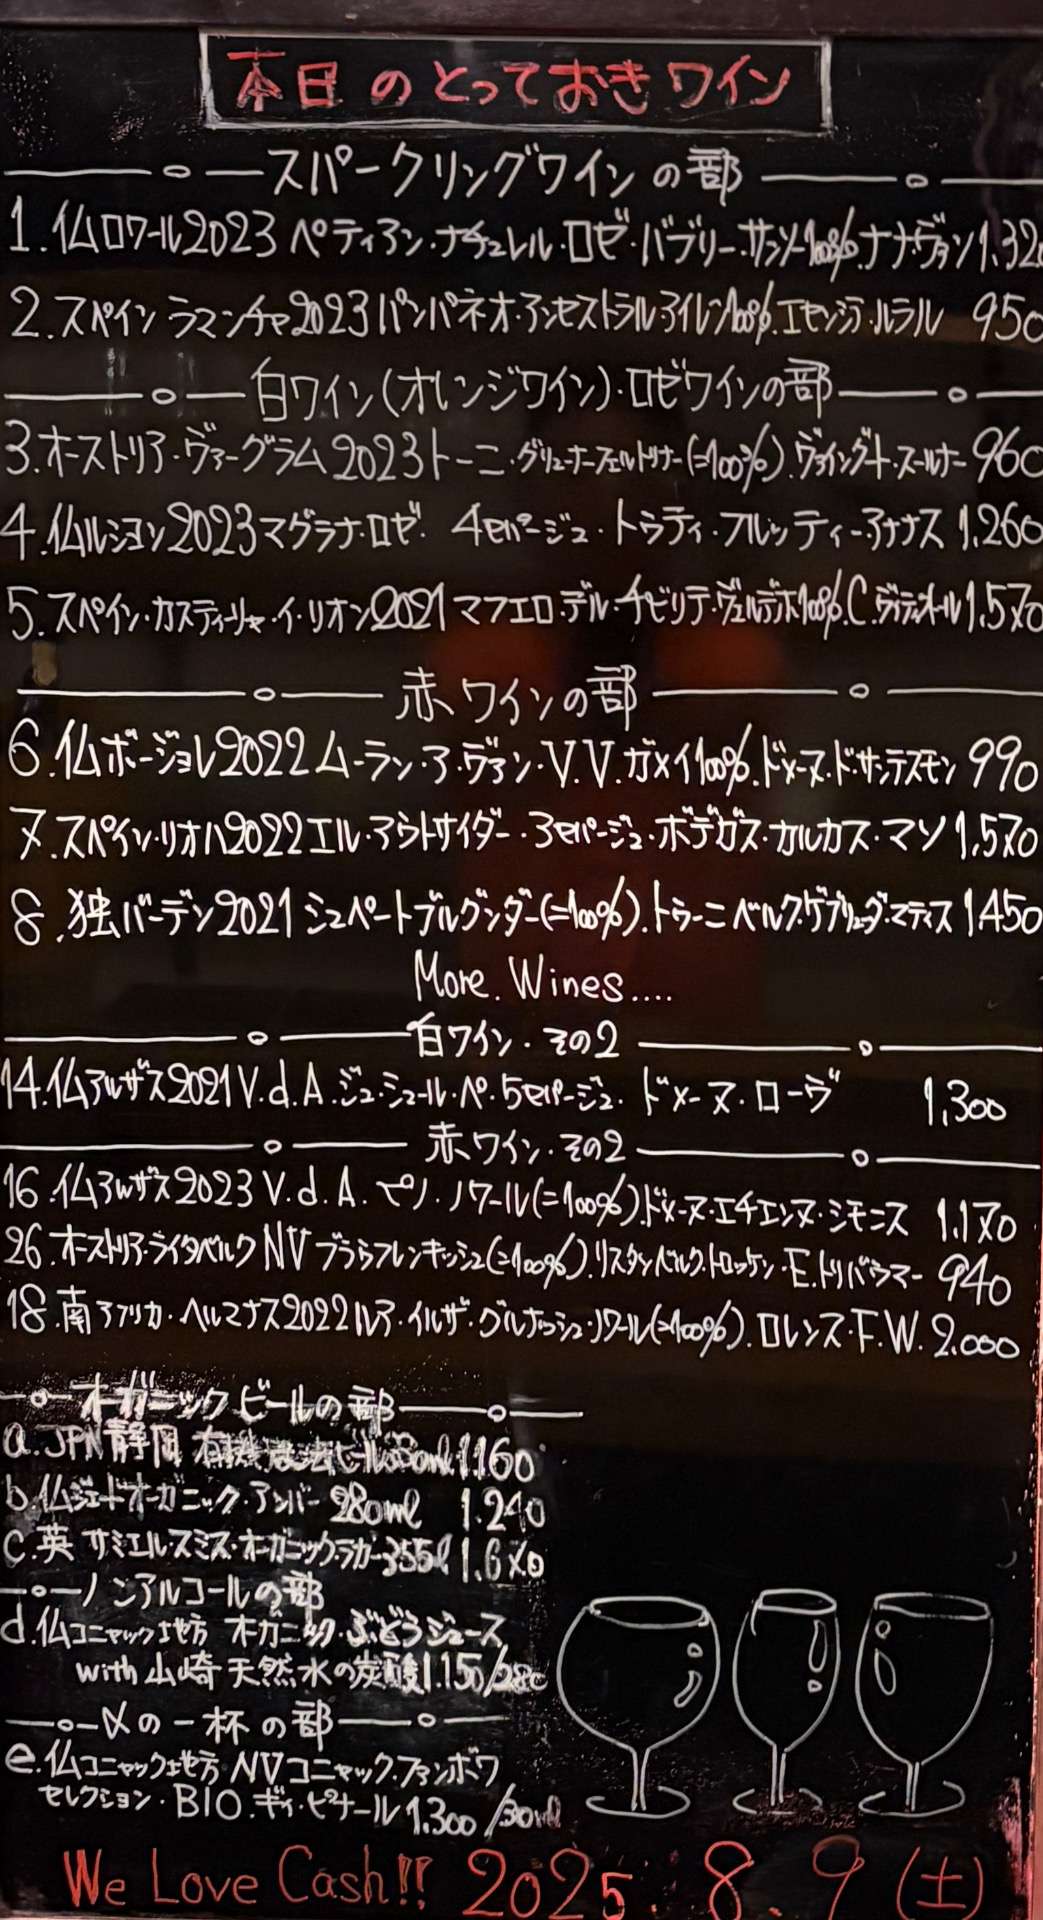 本日のとっておきワイン
スパークリングワインの部
1.仏ロワール2023ペティアン・ナチュレル・ロゼ・バブリー・サンソー100%.ナナ・ヴァン1.320
2.スペインラマンチャ2023パンパネオ・アンセストラルアイレン100%.エセンシア・ルラル 950
白ワイン(オレンジワイン)・ロゼワインの部
3.オーストリア・ヴァーグラム2023トーニ・グリューナーフェルトリナー(=100%).ヴァイングート・スールナー960
4.仏ルション2023マグラナ・ロゼ. 4セパージュ・トゥティ・フルッティ・アナナス1.260
5.スペイン・カスティーリャ・イ・リオン2021マフェロ・デル・チビリテ・ヴェルデホ100%.C.ヴティオール1.570
赤ワインの部
6.仏ボージョレ2022ムーラン・ア・ヴァン・V.V.ガメイ100%.ドメーヌ・ド・サンテスモン990
7.スペイン・リオハ2022エル・アウトサイダー・3セパージュ・ボデガス・カルカス・マソ1.570
8.独バーデン2021シュペートブルグンダー(=100%).トゥーニベルク.ゲブリューダ・マティス1450
More.Wines....
白ワイン・その2
14.仏アルザス2021V.d.A.ジュ・シュール・ペ・5セパージュ・ドメーヌ・ローヴ 1,300
赤ワイン・その2
16.仏アルザス2023V.d.A.ピノ・ノワール(=100%)ドメーヌ・エチエンヌ・シモニス 1.170
26.オーストリア・ライタベルクNVブラウフレンキッシュ(=100%).リスタンベルク・トロッケン・E.トリバウマー 940
18.南アフリカ・ヘルマナス2022ルア・イルザ・グルナッシュ・ノワール(=100%).ロレンス・F.W.2.000
オーガニックビールの部
a.JPN静岡 有機農法ビール 1.160
b.仏ジェードオーガニック・アンバー 280ml 1.240
c.英 サミエルスミス・オーガニックラガー355ℓ1.670
ノンアルコールの部
d.仏コニャック地方 オーガニック・ぶどうジュース
with山崎天然水の炭酸1.150/280
〆の一杯の部
e.仏コニャック地方NVコニャック.ファンボワ
セレクション・BIO.ギィ・ピナール1.300/30ml
We Love Cash!! 2025. 8. 9 (土)